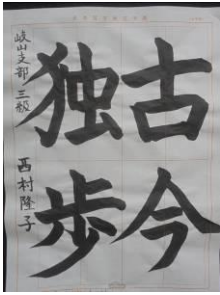 古今
独歩
岐山支部 三級 西村隆子